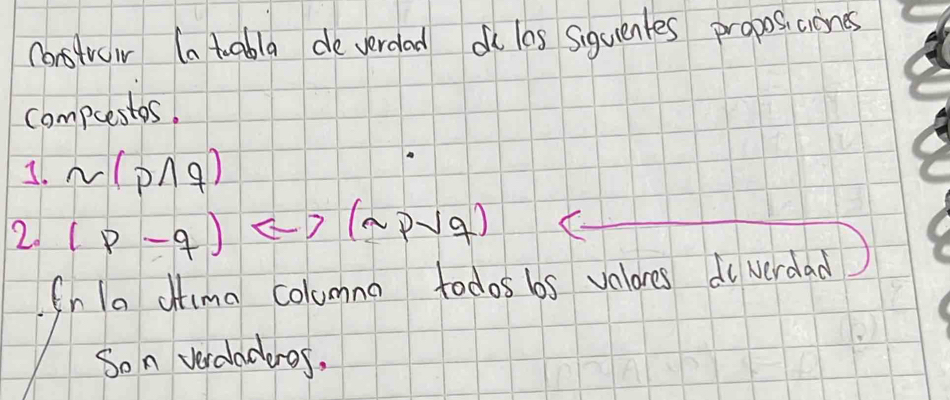 Construir la tuabla de verdad de los siguientes proposiciones
compuestos.
1. ~(p∧q)
2. (p -q) <-> (~p∨q)
En la última columna todos los valores de verdad
son verdaderos.